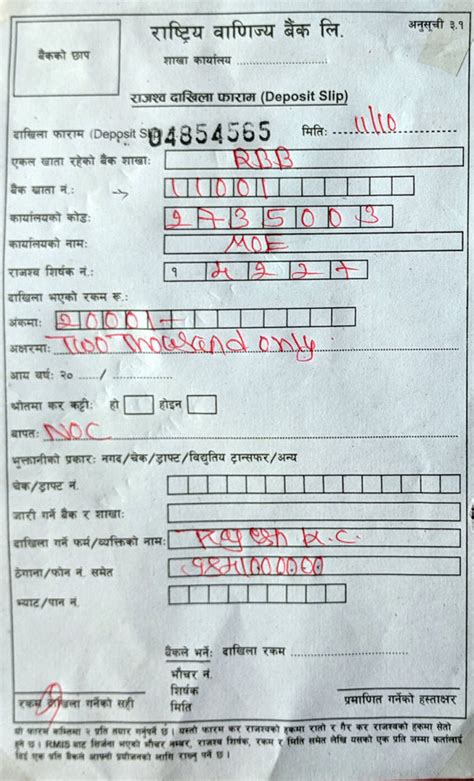 राष्ट्रिय वाणिज्य बैंक लि. अनुसूची ३.१
बैंकको छाप
शाखा कार्यालय
राजश्व दाखिला फाराम (Deposit Slip)
दाखिला फाराम (Deposit Sl 04854565 मितिः 11/10
एकल खाता रहेको बैंक शाखाः RBB
बैंक खाता नं.: → 11001
कार्यालयको कोडः २७३५००३
कार्यालयको नामः MOE
राजश्व शिर्षक नं.: १
दाखिला भएको रकम रू.:
अंकमाः 2000/-
अक्षरमाः Two Thousand only.
आय वर्षः २० ...../ ............
श्रोतमा कर कट्टीः हो होइन
बापतः NOC
भुक्तानीको प्रकारः नगद/चेक/ड्राफ्ट/विद्युतिय ट्रान्सफर/अन्य
चेक/ड्राफ्ट नं.
जारी गर्ने बैंक र शाखाः
दाखिला गर्ने फर्म/व्यक्तिको नामः Rajesh K.C.
ठेगाना/फोन नं. समेत
भ्याट/पान नं.
बैंकले भर्नेः दाखिला रकम
भौचर नं.
शिर्षक
रकम दाखिला गर्नेको सही मिति प्रमाणित गर्नेको हस्ताक्षर
यो फारम कम्तिमा २ प्रति तयार गर्नुपर्ने छ। यस्तो फारम कर राजश्वको हकमा रातो र गैर कर राजश्वको हकमा सेतो
हुने छ। RMIS बाट सिर्जना भएको भौचर नम्बर, राजश्व शिर्षक, रकम र मिति समेत लेखि यसको एक प्रति जम्मा कर्तालाई
दिई एक प्रति बैंकले आफ्नो प्रयोजनको लागि राख्नु पर्ने छ।